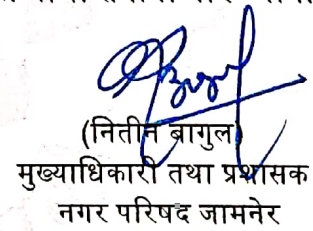 (नितीन बागुल)
मुख्याधिकारी तथा प्रशासक
नगर परिषद जामनेर